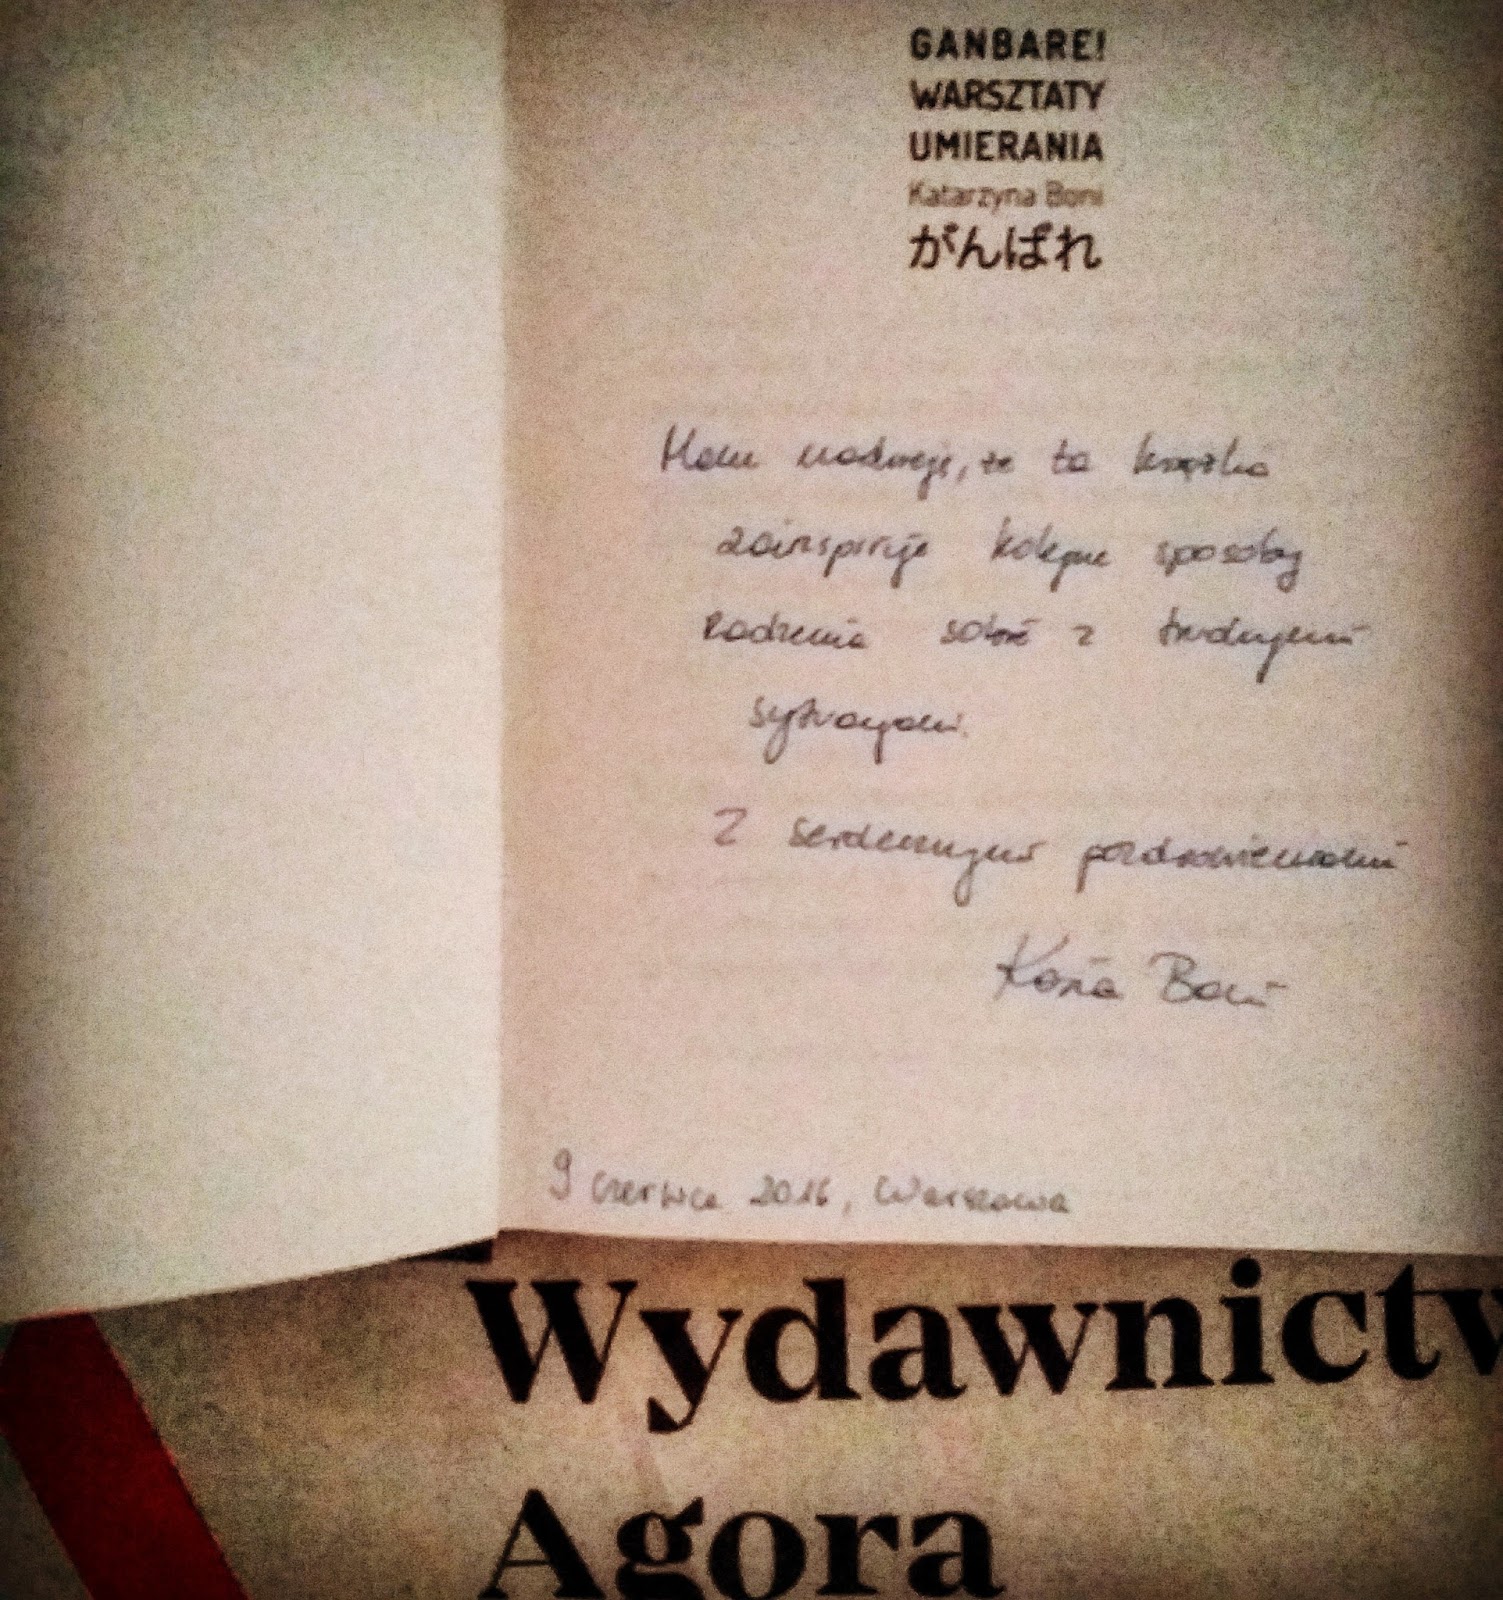 GANBARE!
WARSZTATY
UMIERANIA
Katarzyna Boni
がんばれ
Mam nadzieję, że ta książka
zainspiruje kolejne sposoby
radzenia sobie z trudnymi
sytuacjami.
Z serdecznymi pozdrowieniami
Kasia Boni
9 czerwca 2016, Warszawa
Wydawnictw
Agora